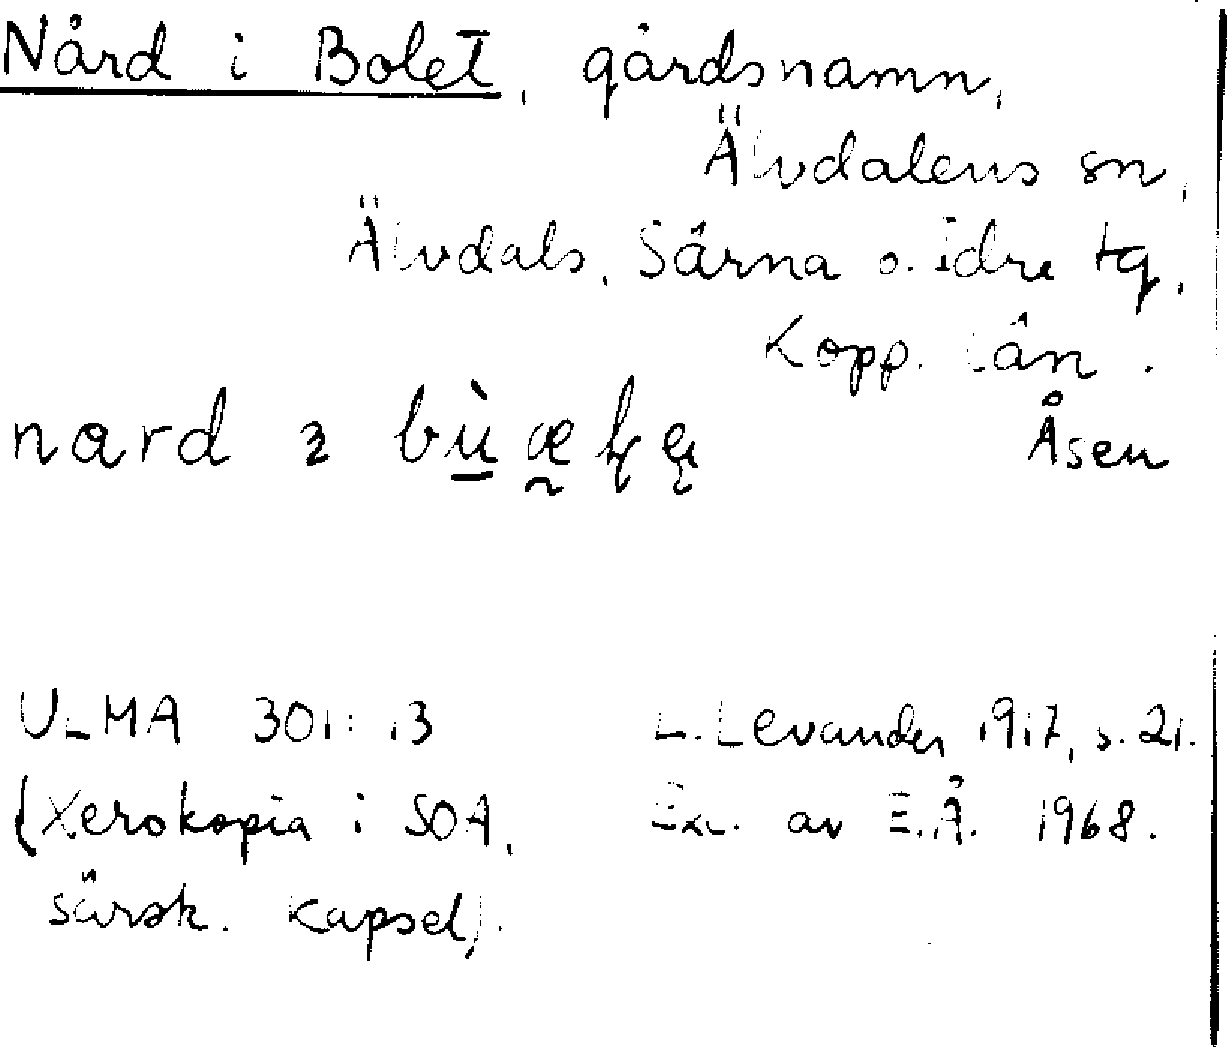 Nård i Bolet, gårdsnamn,
Älvdalens sn,
Älvdals, Särna o. Idre tg,
Kopp. län.
Åsen
ULMA 301:13 L. Levander 1917, s. 21.
(Xerokopia i SOA, Exc. av E.Å. 1968.
särsk. kapsel).